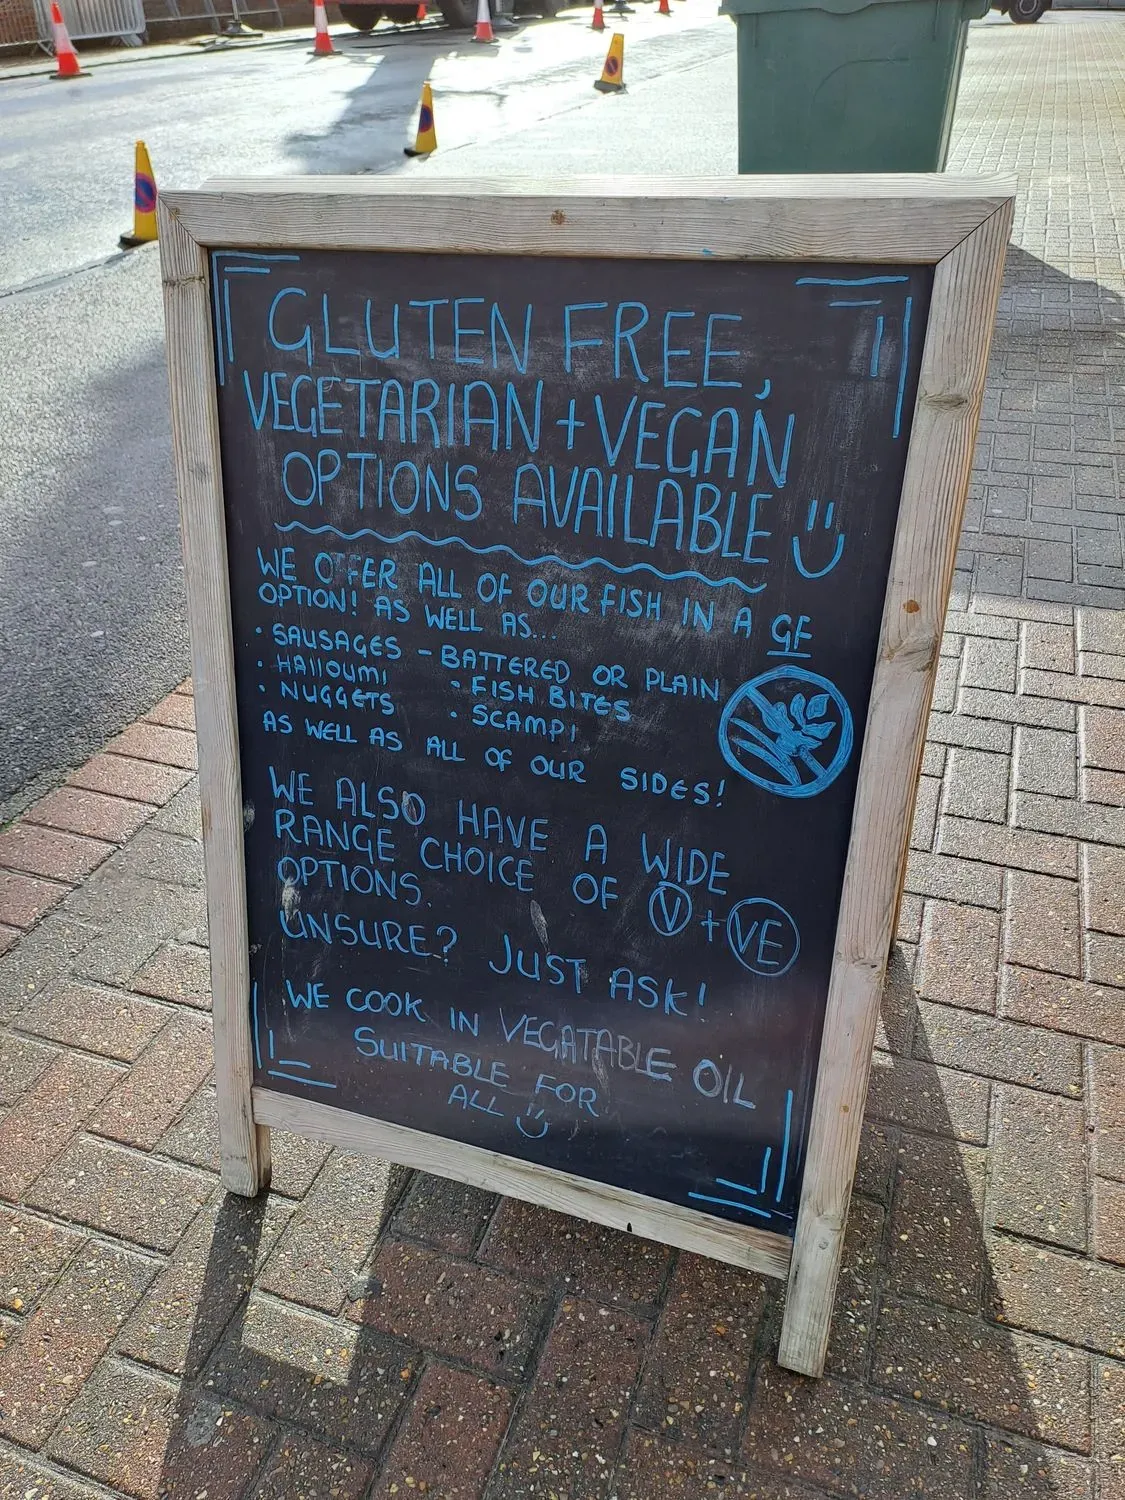 GLUTEN FREE,
VEGETARIAN + VEGAN
OPTIONS AVAILABLE
WE OFFER ALL OF OUR FISH IN A GF
OPTION! AS WELL AS...
• SAUSAGES - BATTERED OR PLAIN
• HAllOUMI • FISH BITES
• NUGGETS • SCAMPI
AS WELL AS ALL OF OUR SIDES!
WE ALSO HAVE A WIDE
RANGE CHOICE OF V + VE
OPTIONS.
UNSURE? JUST ASK!
WE COOK IN VEGATABLE OIL
SUITABLE FOR
ALL